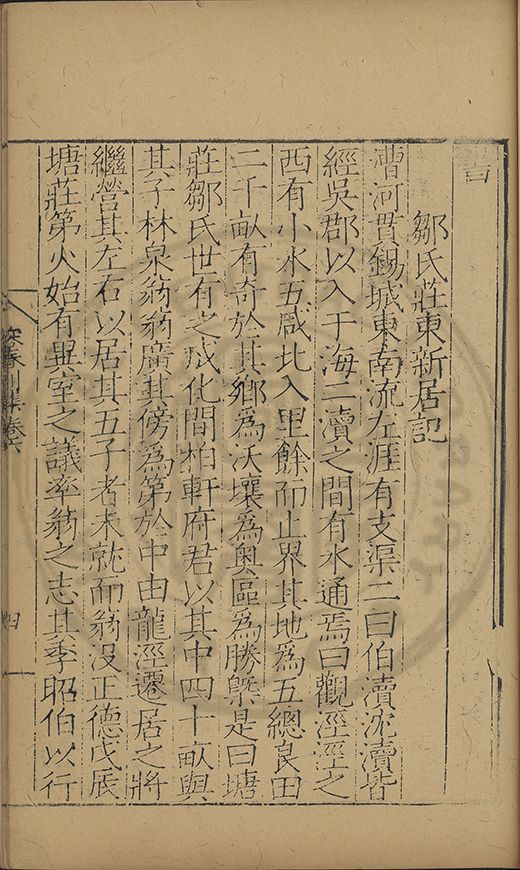 鄒氏莊東新居記
漕河貫錫城東南流左涯有支渠二曰伯瀆沈瀆皆
經吳郡以入于海二瀆之間有水通焉曰觀涇涇之
西有小水五咸北入里餘而止界其地爲五總良田
二千畝有奇於其鄉爲沃壤爲奧區爲勝槩是曰塘
莊鄒氏世有之成化間柏軒府君以其中四十畝與
其子林泉翁翁廣其傍爲第於中由龍涇遷居之將
繼營其左右以居其五子者未就而翁沒正德戊辰
塘莊第火始有異室之議率翁之志其季昭伯以行
容春別集卷六
四